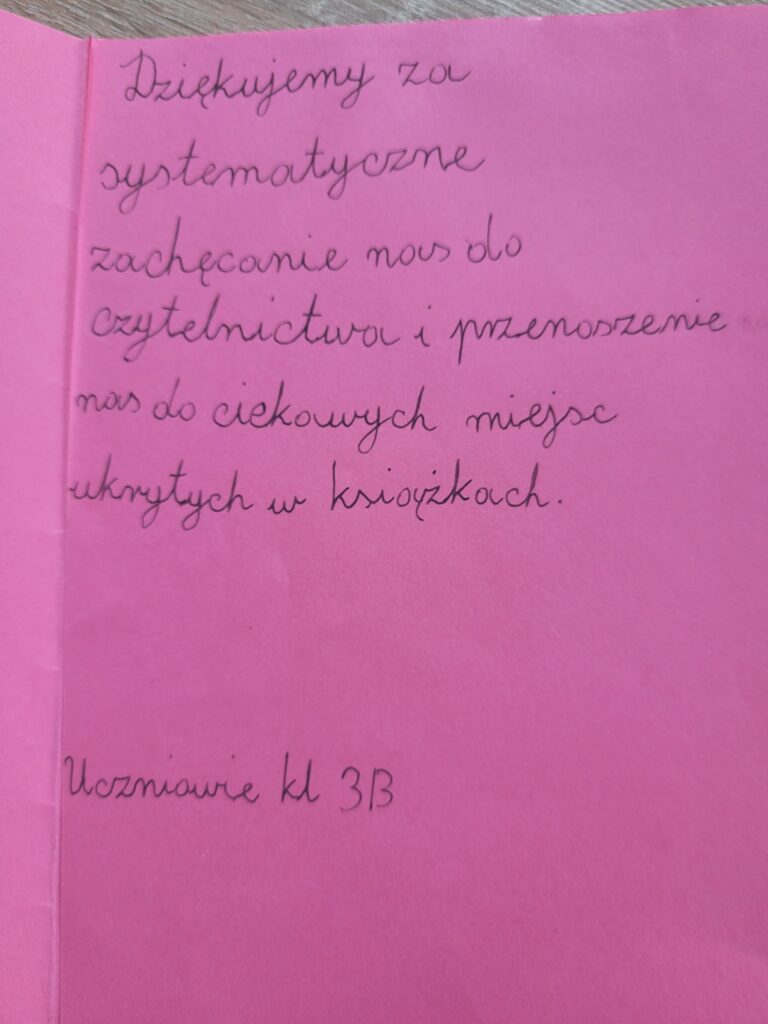 Dziękujemy za
systematyczne
zachęcanie nas do
czytelnictwa i przenoszenie
nas do ciekawych miejsc
ukrytych w książkach.
Uczniowie kl 3B